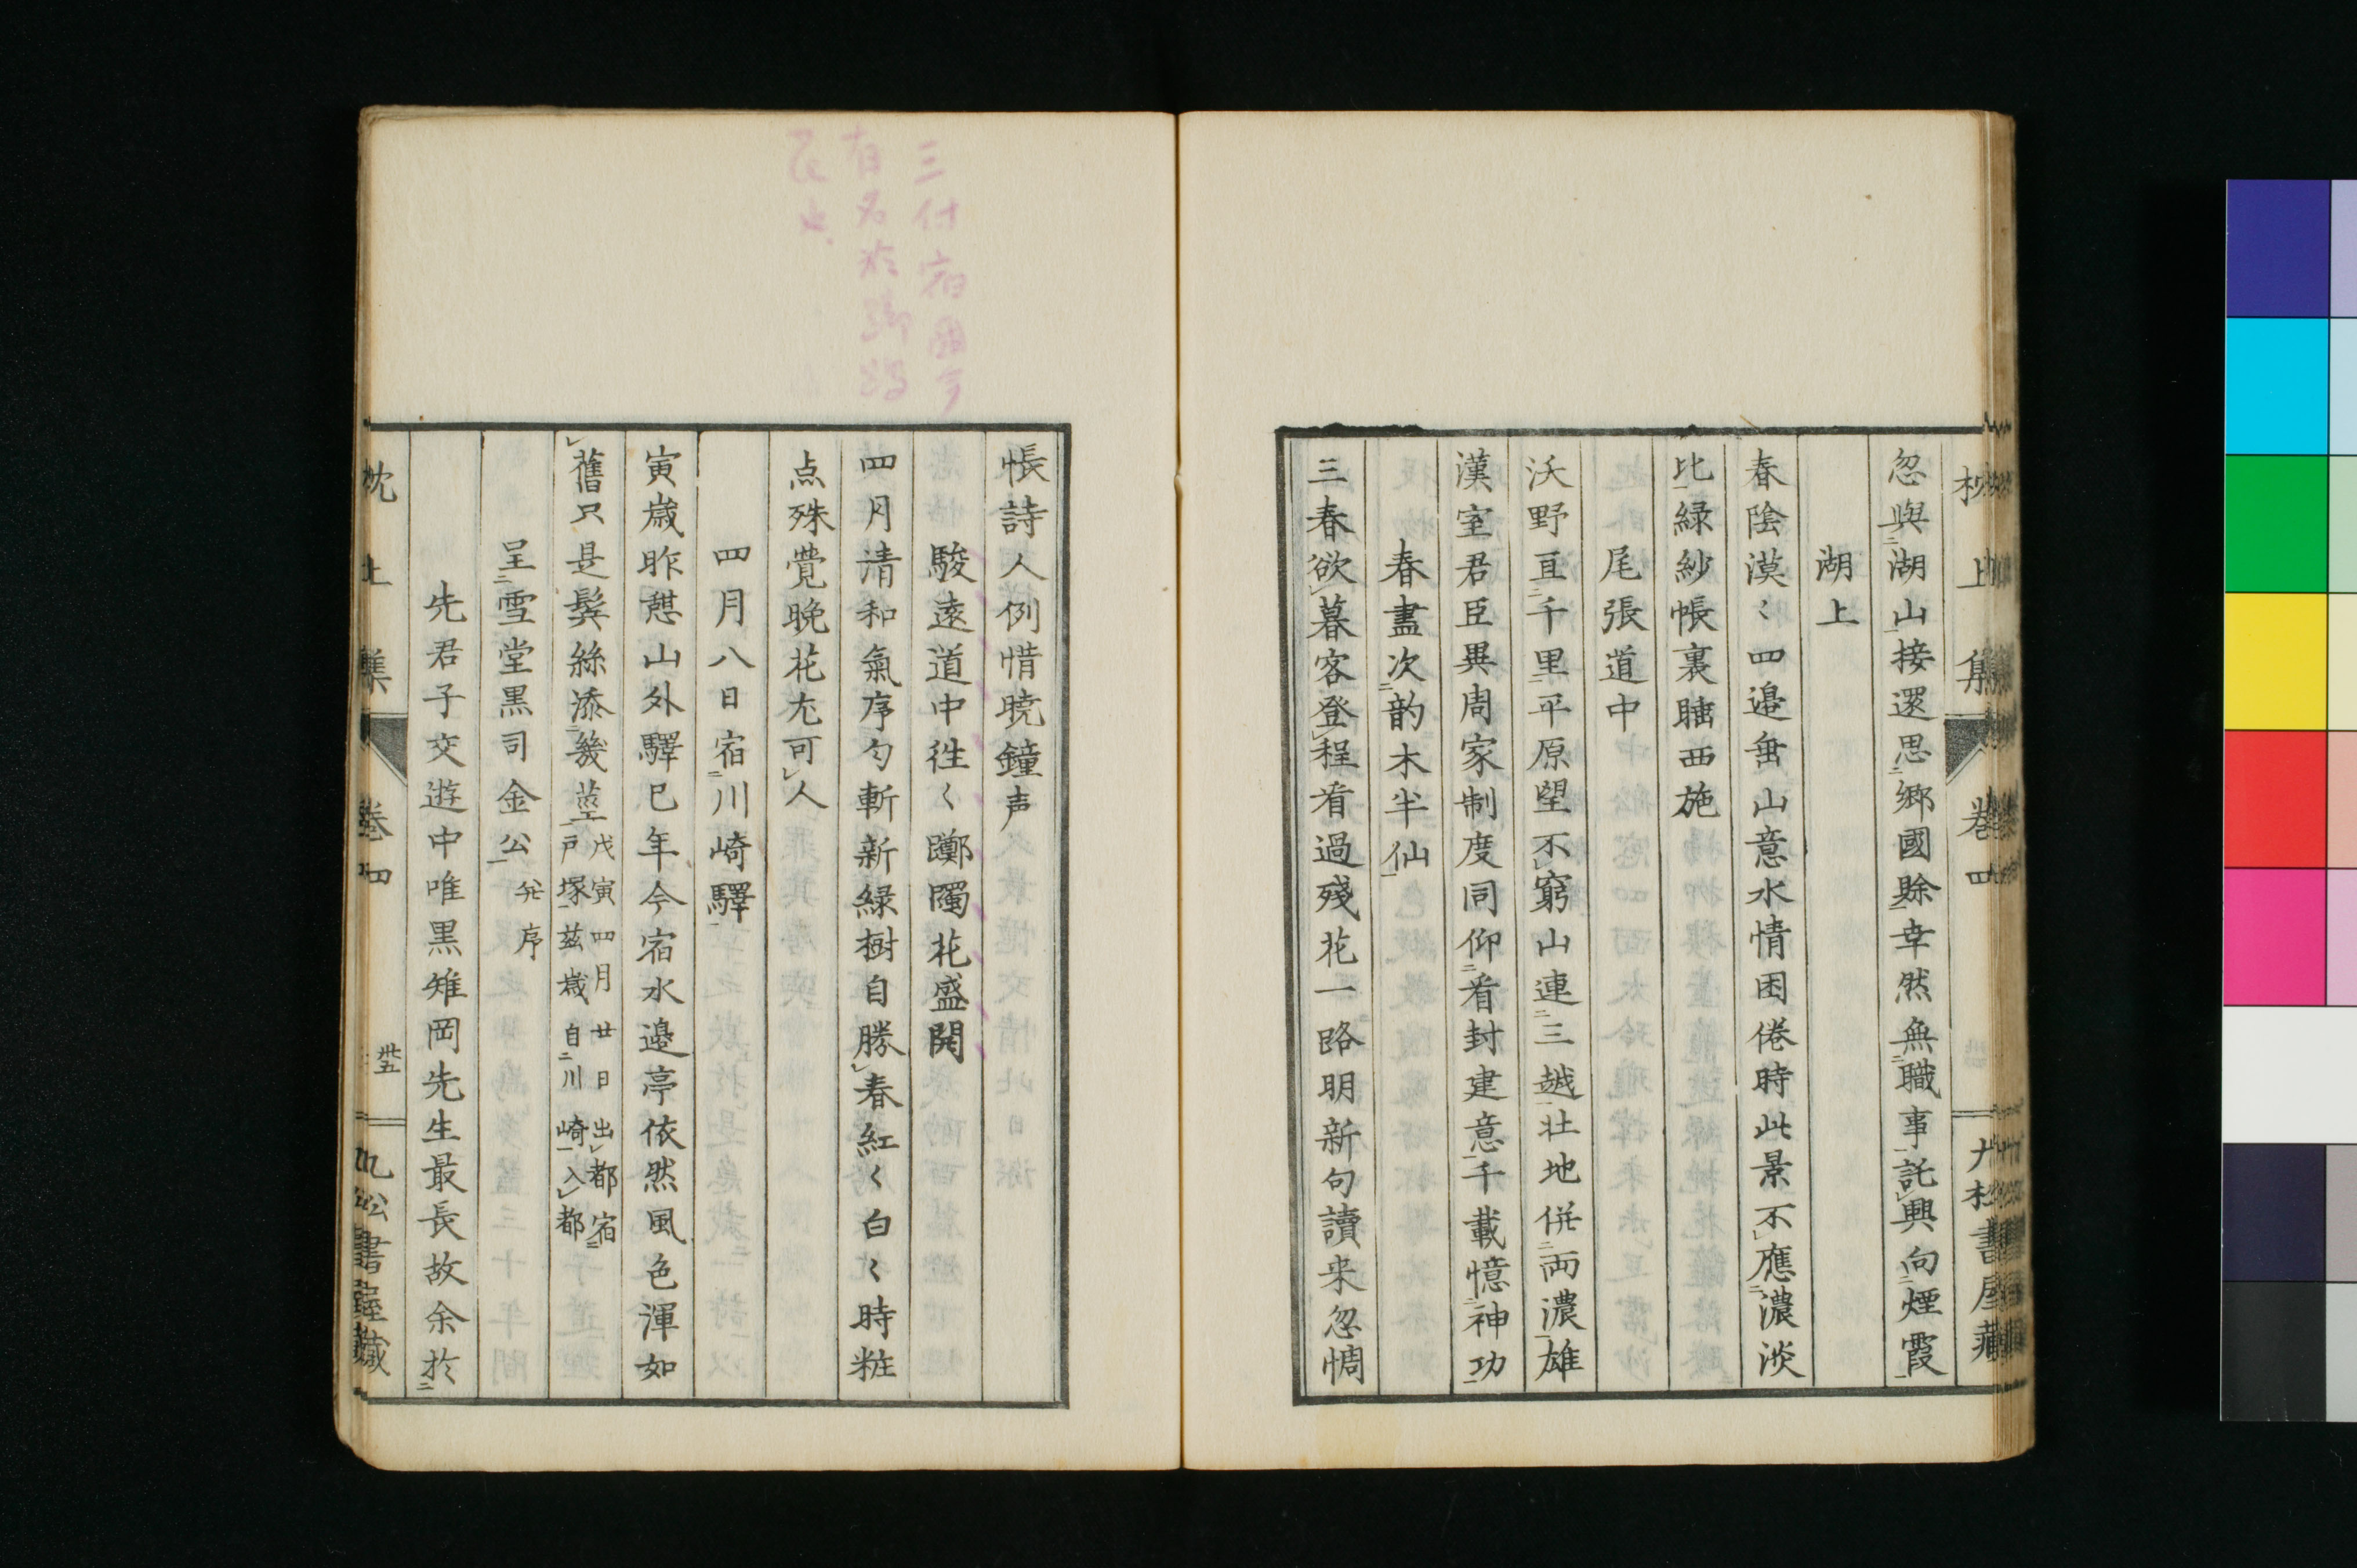 忽與湖山接還思鄉國賒幸然無職事託興向煙霞
湖上
春陰漠〻四邉垂山意水情困倦時此景不應濃淡
比緑紗帳裏睡西施
尾張道中
沃野亘千里平原望不窮山連三越壮地併両濃雄
漢室君臣異周家制度同仰看封建意千載憶神功
春盡次韵木半仙
三春欲暮客登程看過殘花一路明新句讀来忽惆
悵詩人例惜曉鐘声
駿遠道中徃〻躑躅花盛開
四月清和氣序匀斬新緑樹自勝春紅〻白〻時粧
点殊覺晩花尤可人
四月八日宿川崎驛
寅歳昨憩山外驛巳年今宿水邉亭依然風色渾如
舊只是鬂絲添幾莖
戊寅四月廿日出都宿
戸塚兹歳自川崎入都
呈雪堂黒司金公
先君子交遊中唯黒雉岡先生最長故余於
枕上集
卷四
卅五
九松書屋藏